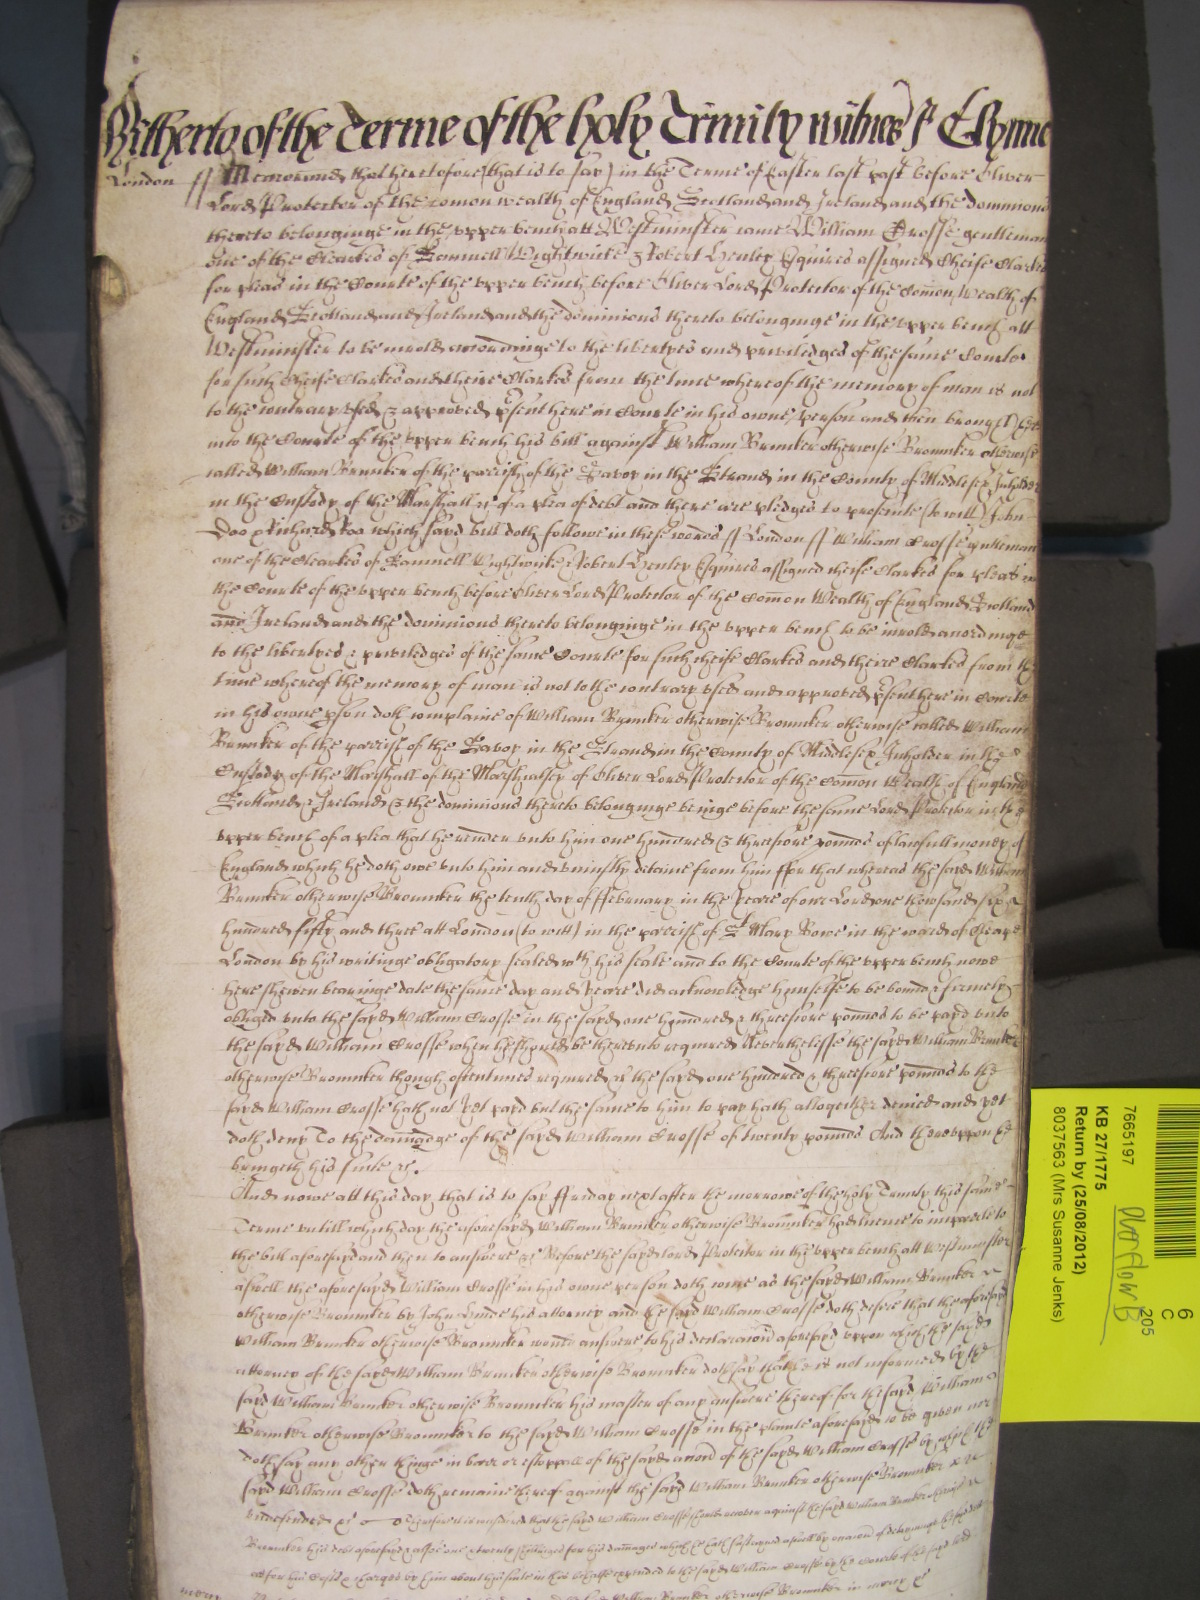 Hitherto of the Terme of the holy Trinity witnes J Glynne
London ss Memorand that heretofore (that is to say) in the Terme of Easter last past before Oliver
Lord Protector of the comon wealth of England Scotland and Ireland and the dominions
thereto belonginge in the upper bench att Westminster came William Crosse gentleman
one of the Clearkes of Wightwicke & Robert Henley Esquires assigned Cheife Clarkes
for pleas in the Courte of the upper bench before Oliver Lord Protector of the Comon Wealth of
England Scotland and Ireland and the dominions thereto belonginge in the upper bench att
Westminster to be inrold accordinge to the libertyes and priviledges of the same Courte
for such Cheife Clarkes and theire Clarkes from the time whereof the memory of man is not
to the contrary used & approved psent here in Courte in his owne person and then brought here
into the Courte of the upper bench his bill against William Brunker otherwise Brounker otherwise
called William Brunker of the parrish of the Savoy in the Strand in the County of Middlesex Inholder
in the Custody of the Marshall &c of a plea of debt and there are pledges to prosecute (to witt) John
Doo & Richard Roo which sayd bill doth followe in these words ss London ss William Crosse gentleman
one of the Clearkes of Wightwicke & Robert Henley Esquires assigned cheife Clarkes for pleas in
the Courte of the upper bench before Oliver Lord Protector of the Comon Wealth of England Scotland
and Ireland and the dominions thereto belonginge in the upper bench to be inrold accordinge
to the libertyes & priviledges of the same Courte for such cheife Clarkes and theire Clarkes from the
time whereof the memory of man is not to the contrary used and approved psent here in Courte
in his owne pson doth complaine of William Brunker otherwise Brounker otherwise called William
Brunker of the parrish of the Savoy in the Strand in the County of Middlesex Inholder in the
Custody of the Marshall of the Marshalsey of Oliver Lord Protector of the Comon Wealth of England
Scotland & Ireland & the dominions thereto belonginge beinge before the same Lord Protector in the
upper bench of a plea that he render unto him one hundred & threescore pounds of lawfull money of
England which he doth owe unto him and uniustly detaine from him ffor that whereas the sayd William
Brunker otherwise Brounker the tenth day of ffebruary in the yeare of our Lord one thowsand six
hundred fifty and three att London (to witt) in the parrish of St Mary Bowe in the ward of Cheape
London by his writinge obligatory sealed wth his seale and to the Courte of the upper bench nowe
here shewen bearinge date the same day and yeare did acknowledge himselfe to be bound & firmely
obliged unto the sayd William Crosse in the sayd one hundred & threescore pounds to be payd unto
the sayd William Crosse when he should be thereunto required Neverthelesse the sayd William Brunker
otherwise Brounker though oftentimes required &c the sayd one hundred & threescore pounds to the
sayd William Crosse hath not yet payd but the same to him to pay hath altogether denied and yet
doth deny To the damage of the sayd William Crosse of twenty pounds And thereuppon he
bringeth his suite &c.
And nowe att this day that is to say ffriday next after the morrowe of the holy Trinity this same
Terme untill which day the aforesayd William Brunker otherwise Brounker had licence to imparle to
the bill aforesayd and then to answere &c Before the sayd Lord Protector in the upper bench att Westminster
aswell the aforesayd William Crosse in his owne person doth come as the sayd William Brunker
otherwise Brounker by John his attorney and the sayd William Crosse doth desire that the aforesayd
William Brunker otherwise Brounker would answere to his declaracoid aforesayd uppon which the sayd
attorney of the sayd William Brunker otherwise Brounker doth say that he is not informed by the
sayd William Brunker otherwise Brounker his master of any answere thereof for the sayd William
Brunker otherwise Brounker to the sayd William Crosse in the plainte aforesayd to be given nor
doth say any other thinge in barre or estoppall of the sayd accion of the sayd William Crosse by which the
sayd William Crosse doth remaine thereof against the sayd William Brunker otherwise Brounker &c
undefended &c Therefore it is considered that the sayd William Crosse should recover against the sayd William Brunker otherwise
Brounker his debt aforesayd & alsoe one & twenty shillings for his damages which he hath sustayned aswell by occasion of detayninge the sayd debt
as for his Costs & charges by him about his suite in his behalfe expended to the sayd William Crosse by the Courte of the sayd Lord
William Brunker otherwise Brounker in mercy &c
mercy
6
C
205
Overflow B
7665197
KB 27/1775
Return by (25/08/2012)
8037563 (Mrs Susanne Jenks)